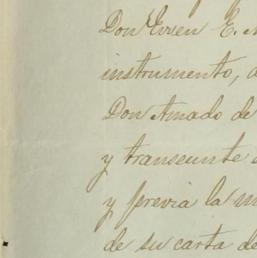 Don Evien E. 
instrumento, a
Don Amado de
y transeunte
y previa la m
de su carta de